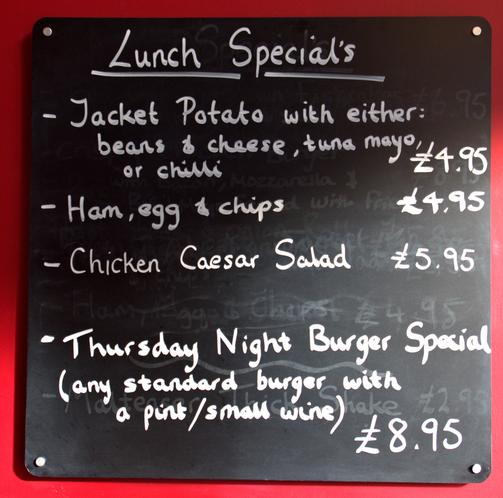 Lunch Special's
- Jacket Potato with either:
beans & cheese, tuna mayo,
or chilli £4.95
- Ham, egg & chips £4.95
- Chicken Caesar Salad £5.95
Ham, Egg & Chips £4.95
- Thursday Night Burger Special
(any standard burger with
a pint/small wine)
Shake £2.95
£8.95